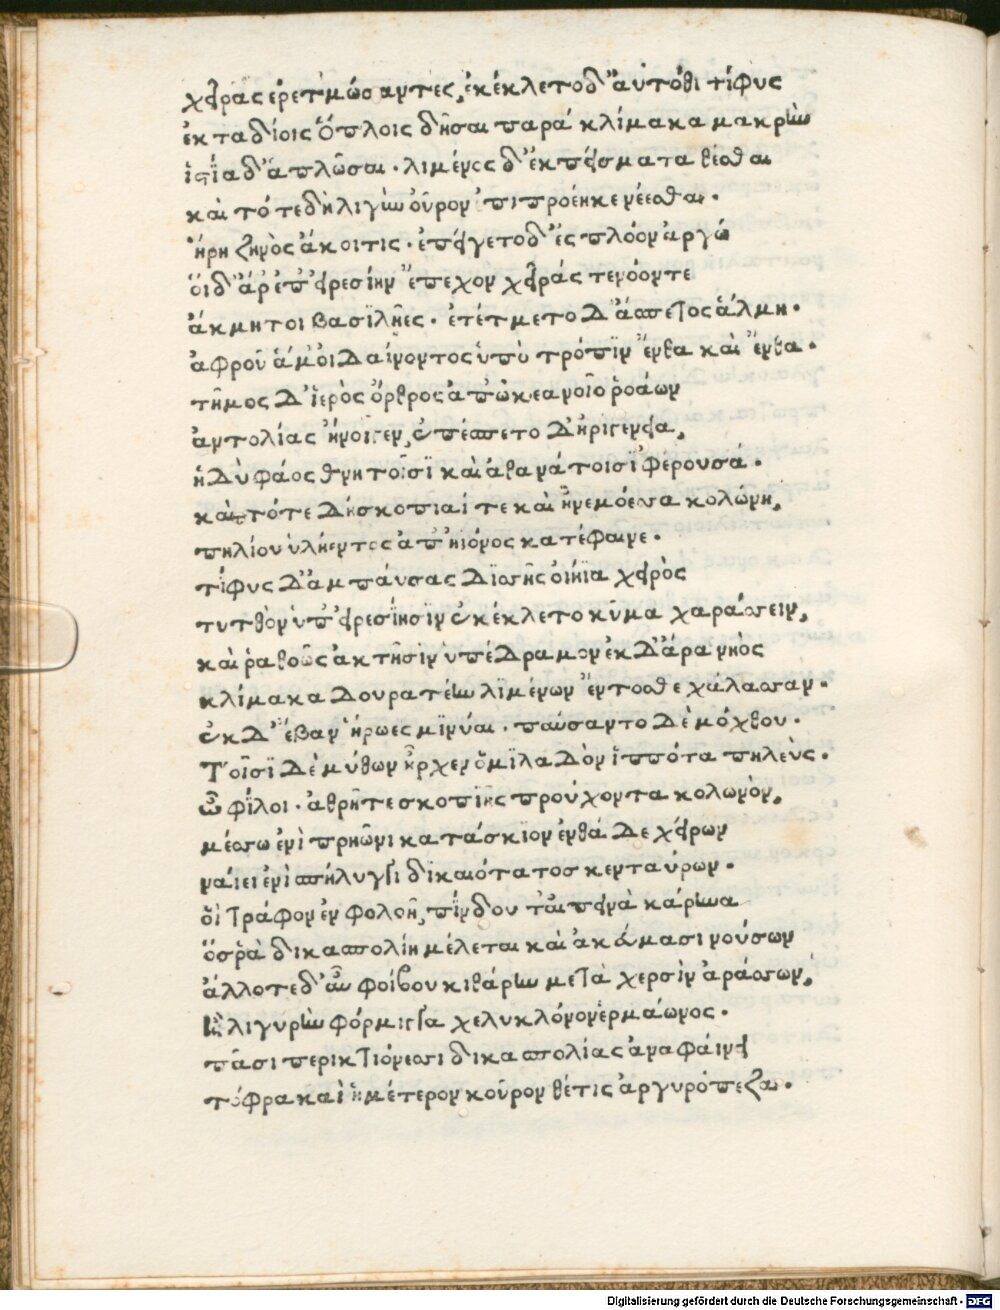 χεῖρας ἐρετμώσαντες, ἐκέκλετο δ' αὐτόθι τίφυς
ἐκταδίοις ὅπλοις δῆσαι παρὰ κλίμακα μακρὴν
ἱστία δ' ἁπλῶσαι· λιμένος δ' ἐκπείσματα θέσθαι
καὶ τότε δὴ λιγὺν οὖρον ἐπιπροέηκε νέεσθαι·
ἥρη ζηνὸς ἄκοιτις· ἐπείγετο δ' ἐς πλόον ἀργώ
ὅιδ' ἄρ' ἐπ' εἰρεσίην ἔπεχον χεῖράς τε νόον τε
ἄκμητοι βασϊλῆες· ἐτέτμετο δ' ἄσπετος ἅλμη·
ἀφροῦ ἀμοιδαίνοντος ὑπὸ τρόπϊν ἔνθα καὶ ἔνθα·
τῆμος δ' ἱερὸς ὄρθρος ἀπ' ὠκεανοῖο ῥοάων
ἀντολίας ἤνοιγεν, ἐπέσπετο δ' ἠριγενεία,
ἡδὺ φάος θνητοῖσϊ καὶ ἀθανάτοισϊ φέρουσά·
καὶ τότε δὴ σκοπιαί τε καὶ ἠνεμόεσσα κολώνη,
πηλίου ὑλήεντος ἀπ' ἠϊόνος κατέφαινε·
τίφυς δ' ἀμπαύσας δϊσσῆς οἰήϊα χειρὸς
τυτθὸν ὑπ' εἰρεσίησϊν ἐκέκλετο κῦμα χαράσσειν,
καὶ ῥαθοῶς ἀκτῆσιν ὑπέδραμον ἐκ δ' ἄρα νηὸς
κλίμακα δουρατέην λϊμένων ἔντοσθε χάλασσαν·
ἐκ δ' ἔβαν ἥρωες μϊνύαι· παύσαντο δὲ μόχθου·
Τοῖσϊ δὲ μύθων ἦρχεν ὅμϊλαδὸν ἱππότα πηλεὺς·
ὦ φίλοι· ἀθρῆτε σκοπϊῆς προύχοντα κολωνὸν,
μέσσω ἐνὶ πρηῶνι κατάσκϊον ἐνθάδε χείρων
ναίει ἐνὶ σπήλυγγι δϊκαιότατος κενταύρων·
ὅι τράφον ἐν φολόη, πίνδου τ' αἰπεινὰ κάρηνα
ὅς ῥὰ δικασπολίη μέλεται καὶ ἀκέσμασι νούσων
ἄλλοτε δ' αὖ φοίβου κιθάρην μετὰ χερσὶν ἀράσσων,
ἢ λιγυρὴν φόρμιγγα χελυκλόνον ἑρμάωνος·
πᾶσι περικτιόνεσσι δικασπολίας ἀναφαίνει
τόφρα καὶ ἡμέτερον κοῦρον θέτις ἀργυρόπεζα·
Digitalisierung gefördert durch die Deutsche Forschungsgemeinschaft · DFG